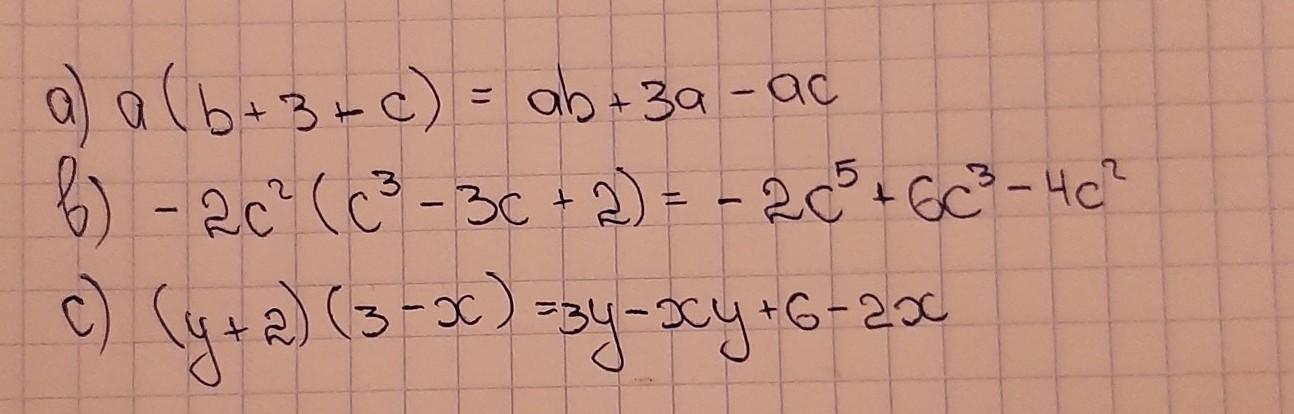 a) a(b+3-c) = ab+3a-ac
b) -2c²(c³-3c+2) = -2c⁵+6c³-4c²
c) (y+2)(3-x) =3y-xy+6-2x